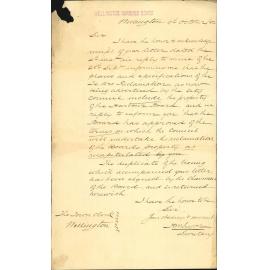 WELLINGTON HARBOUR BOARD
Wellington
Sir
I have the honor to acknowledge
receipt of your letter dated the
in reply to mine of the
informing me that the
plans and specifications of the
Te Aro Reclamation as now
being advertised by the
City Council include the property of
the Harbour Board and in
reply to inform you that the
Board has approved of the
terms on which the Council
will undertake the reclamation
of the Board's property as
recapitulated by you
The duplicate of the tracing
which accompanied your letter
has been signed by the Chairman
of the Board and is returned
herewith
I have the honor to be
Sir
Your obedient servant
Secretary
The Town Clerk
Wellington